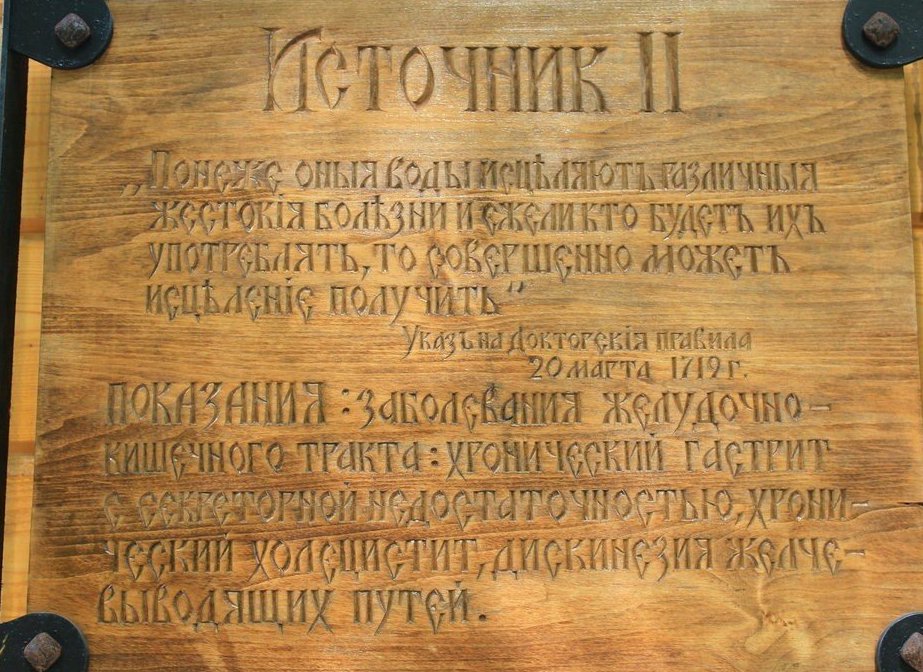 Источник II
„Понеже оныя воды исцѣляютъ различныя
жестокія болѣзни и ежели кто будетъ ихъ
употреблять, то совершенно можетъ
исцѣленіе получить“
Указъ на Докторскія правила
20 марта 1719 г.
Показания: заболевания желудочно-
кишечного тракта: хронический гастрит
с секреторной недостаточностью, хрони-
ческий холецистит, дискинезия желче-
выводящих путей.